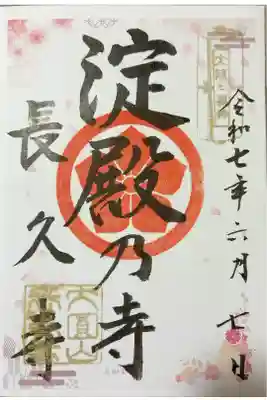 令和七年六月 日
淀殿乃寺
長久寺